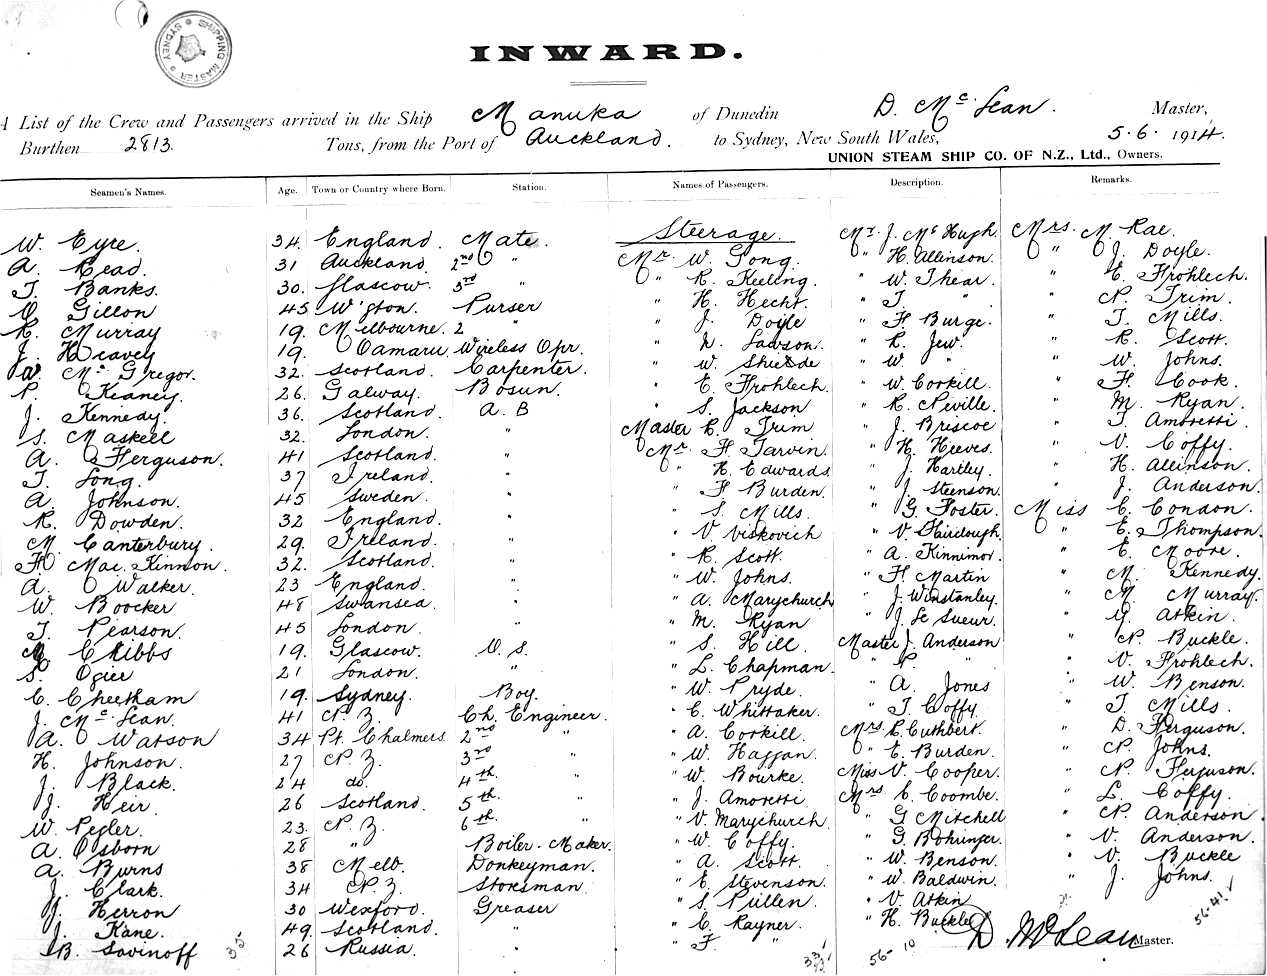 SHIPPING MASTER SYDNEY
INWARD.
A List of the Crew and Passengers arrived in the Ship Manuka of Dunedin D. McLean. Master,
Burthen 2813. Tons, from the Port of Auckland. to Sydney, New South Wales, 5.6.1914.
UNION STEAM SHIP CO. OF N.Z., Ltd., Owners.
Seamen's Names. Age. Town or Country where Born. Station. Names of Passengers. Description. Remarks.
W. Eyre. 34. England. Mate. Steerage. Mr. J. McHugh. Mrs. M Rae.
A. Read. 31 Auckland. 2nd " Mr. W. Gong. " H. Allinson. " J. Doyle.
T. Banks. 30. Glascow. 3rd " " R. Keeling. " W. Thear. " E. Frohlech.
O. Gillon 45 W'gton. Purser " H. Hecht. " T. " " N. Trim.
R. Murray 19. Melbourne. 2 " " J. Doyle " F Burge. " T. Mills.
J. Heavey 19. Oamaru. Wireless Opr. " D. Lawson. " R. Jew. " R. Scott.
W. McGregor. 32. Scotland. Carpenter. " W. " W. " " W. Johns.
P. Keaney. 26. Galway. Bosun. " E. Frohlech. " W. Corkill. " F. Cook.
J. Kennedy. 36. Scotland. A. B " S. Jackson " R. Neville. " M. Ryan.
S. Maskell 32. London. " Master C. Trim " J. Briscoe " T. Amoretti
A. Ferguson. 41 Scotland. " Mr. F Tarvin. " H. Heeves. " V. Coffy.
T. Long. 37 Ireland. " " H. Edwards " J. Hartley. " H. Allinson.
A. Johnson. 45 Sweden. " " F Burden. " J. Steenson. " J. Anderson.
R. Dowden. 32 England. " " S. Mills. " G. Foster. Miss C. Condon.
M. Canterbury. 29. Ireland. " " V. Viskovich " V. Fairclough. " E. Thompson.
F. MacKinnon. 32. Scotland. " " R. Scott. " A. Kinnimor. " E. Moore.
A. Walker. 23 England. " " W. Johns. " F. Martin " M. Kennedy.
W. Boocker 48 Swansea. " " A. Marychurch " J. Winstanley. " M. Murray.
T. Pearson. 45 London. " " M. Ryan " J. Le Sueur. " G. Atkin.
Chibbs 19. Glascow. O. S. " S. Hill. Master J. Anderson " N. Buckle.
S. Ogier 21 London. " " L. Chapman. " P. " " V. Frohlech.
C. Cheetham 19. Sydney. Boy. " W. Pryde. " A. Jones " W. Benson.
J. McLean. 41 N. Z. Ch. Engineer. " E. Whittaker. " T. Coffy " T. Mills.
A. Watson 34 Pt. Chalmers. 2nd " " A. Corkill. Mrs C. Cuthbert. " D. Ferguson.
H. Johnson. 27 N. Z. 3rd " " W. Haggan. " E. Burden. " N. Johns.
J. Black. 24 do. 4th " " W. Bourke. Miss V. Cooper. " N. Ferguson.
J. Heir 26 Scotland. 5th " " J. Amoretti Mrs C. Coombe. " L. Coffy.
W. Pegler. 23. N. Z. 6th " " V. Marychurch " G Mitchell " N. Anderson.
A. Osborn 28 " Boiler-Maker. " W. Coffy. " G. Bohringer. " V. Anderson.
A. Burns 38 Melb. Donkeyman. " A. Scott. " W. Benson. " V. Buckle
J. Clark. 34 N. Z. Storesman. " E. Stevenson. " W. Baldwin. " J. Johns.
J. Herron 30 Wexford. Greaser " S. Pullen. " V. Atkin 56-41
J. Kane. 49. Scotland. " " C. Rayner. " H. Buckle D. McLean Master.
B. Savinoff 35 26 Russia. " " F " 33 56-10